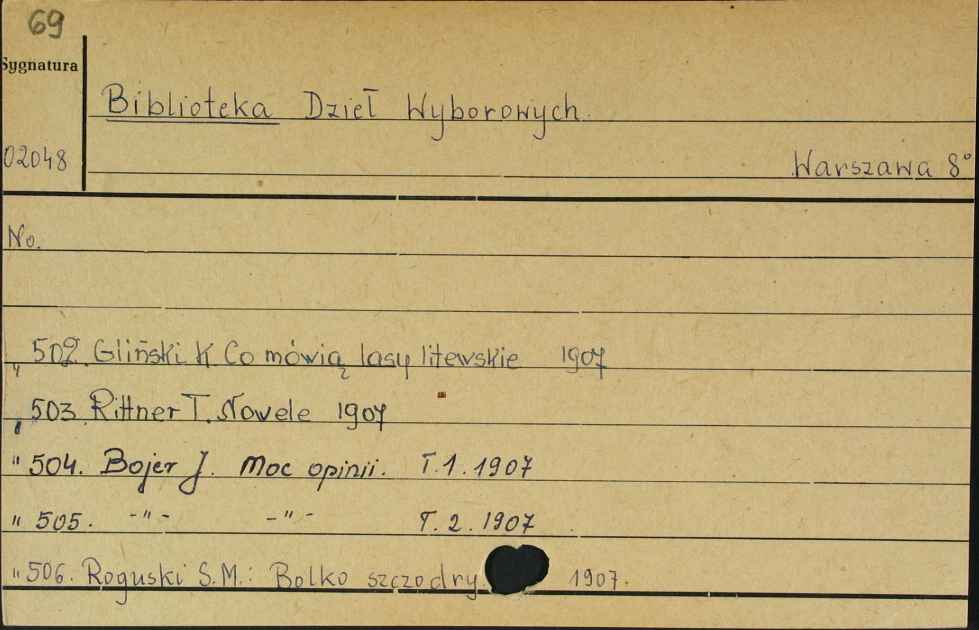 69
Sygnatura
Biblioteka Dzieł Wyborowych.
02048
Warszawa 8°
No.
" 502. Gliński K Co mówią lasy litewskie 1907
" 503 Rittner T. Nowele 1907
" 504. Bojer J. Moc opinii. T.1.1907
" 505. -"- -"- T.2.1907
" 506. Roguski S.M.: Bolko szczodry. 1907.